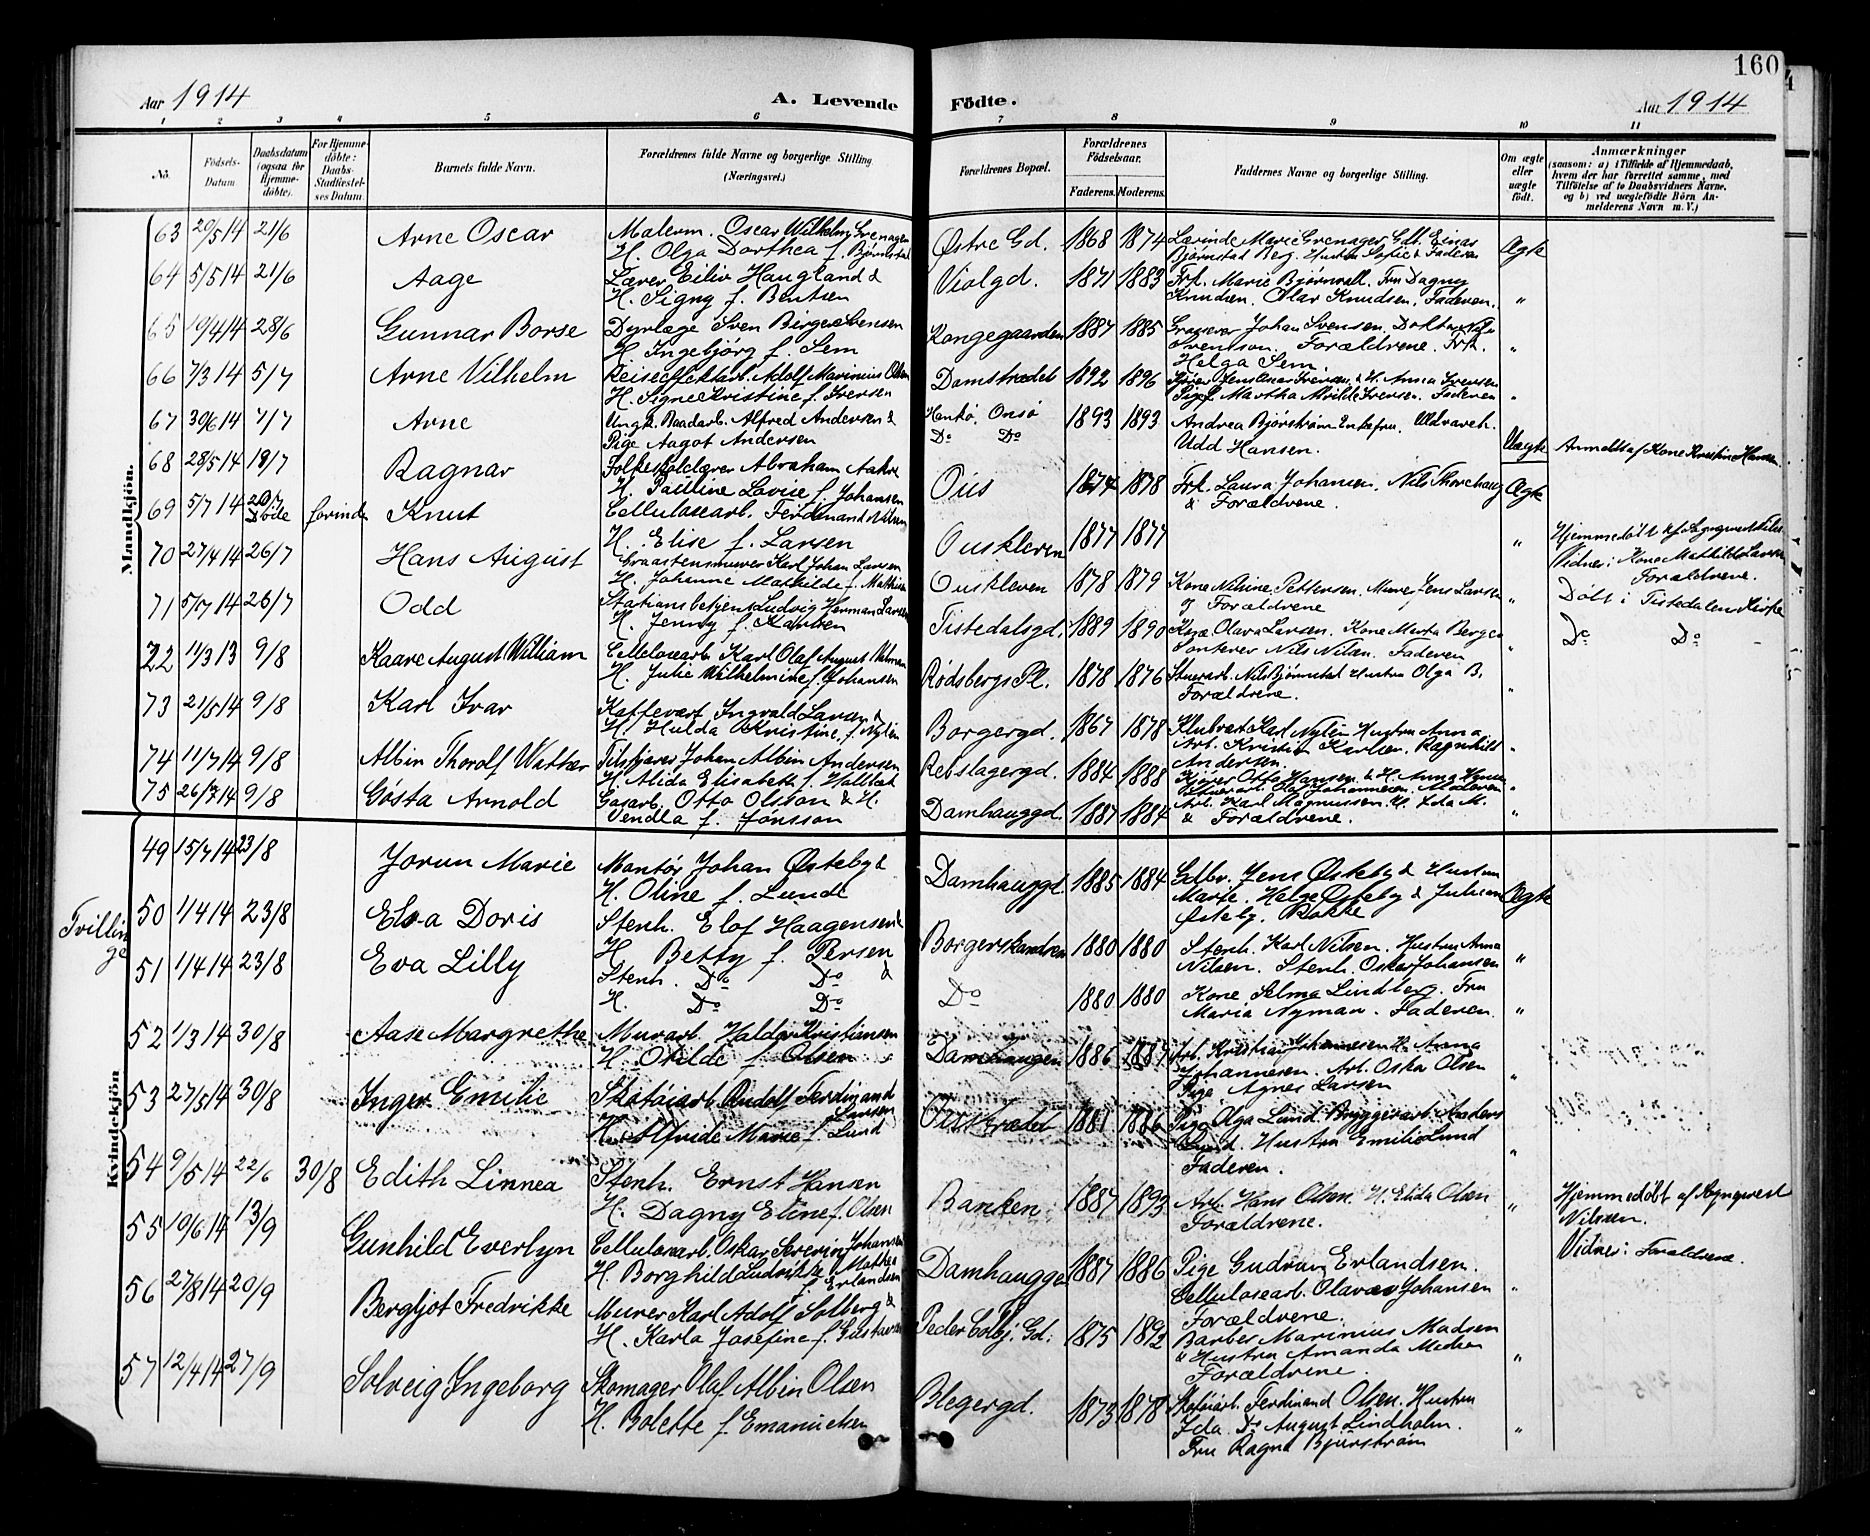 160
Aar 1914
A. Levende Födte.
Aar 1914
1 2 3 4 5 6 7 8 9 10 11
No.
Födsels-Datum
Daabsdatum (ogsaa for Hjemmedöbte).
For Hjemmedöbte: Daabs-Stadfæstelses Datum.
Barnets fulde Navn.
Forældrenes fulde Navne og borgerlige Stilling (Næringsvei.)
Forældrenes Bopæl.
Forældrenes Födselsaar.
Faderens. Moderens.
Faddernes Navne og borgerlige Stilling.
Om ægte eller uægte født.
Anmærkninger
(saasom: a) i Tilfælde af Hjemmedaab, hvem der har forrettet samme, med Tilföielse af to Daabsvidners Navne, og b) ved uægtefödte Börn Anmelderens Navn m. V.)
Mandkjön.
63 20/5 14 21/6 Arne Oscar
Oscar Wilhelm Grenager
H. Olga Dorthea f. Bjørnstad
Østre Gd. 1868 1874
Ægte
64 5/5 14 21/6 Aage
Lærer Eiliv Haugland &
H. Signy f. Bentsen
Violgd. 1871 1883
Frk. Marie Bjørnvall. Fru Dagny
Knudsen. Olaf Knudsen. Faderen. "
65 19/4 14 28/6 Gunnar Borse
Dyrlæge Sven Birger Svensen
H. Ingebjørg f. Sem
Kongegaarden 1887 1885
Johan Svensen.
Svensson. Forældrene. Frk.
Helga Sem "
66 7/3 14 5/7 Arne Vilhelm
Reiseeffektarb. Adolf Marinius Olsen
H. Signe Kristine f. Iversen
Damstrædet 1892 1896
& H. Anna Iversen
Pige Martha Iversen. Faderen "
67 30/6 14 7/7 Arne
Ungk. Baadarb. Alfred Andersen &
Pige Aagot Andersen
Hankø, Onsø 1893 1893
Do Do
Andrea Bjørstrøm Enkefru.
Udd Hansen.
Uægte
Anmeldt af Kone Kristine Hansen
68 28/5 14 19/7 Ragnar
Folkeskolelærer Abraham Aakre
H. Pauline Lovise f. Johansen
Ous 1874 1878
Frk. Laura Johansen. Nils Thorehaug
& Forældrene.
Ægte
69 5/7 14 20/7 Døde forinden Knut
Cellulosearb. Ferdinand Nilsen
H. Elise f. Larsen
Ouskleven 1877 1877
"
Hjemmedøbt af Sognepræst Nilsen
Vidner: Kone Mathilde Larsen
Forældrene.
70 27/4 14 26/7 Hans August
Graastensmurer Karl Johan Larsen
H. Johanne Mathilde f. Mathisen
Ouskleven 1878 1879
Kone Nilsine Pettersen. Murer Jens Larsen
og Forældrene "
Døbt i Tistedalen Kirke
71 5/7 14 26/7 Odd
Stationsbetjent Ludvig Herman Larsen
H. Jenny f. Karlsen
Tistedalsgd. 1889 1890
Kone Olava Larsen. Kone Marta Berger
Nils Nilsen. Faderen "
Do Do
72 11/3 13 9/8 Kaare August William
Cellulosearb. Karl Olaf August
H. Julie Wilhelmine f. Johansen
Rødsbergs Pl. 1878 1876
Stuerarb. Nils Bjørnstad Hustru Olga B.
Forældrene. "
73 21/5 14 9/8 Karl Ivar
Kaffevært Ingvald Larsen &
H. Hulda Kristine f. Nylén
Borgergd. 1867 1878
Karl Nylén Hustru Anna
Arb. Kristian Karlsen. Ragnhild
Andersen. "
74 11/7 14 9/8 Albin Thorolf Walther
Johan Albin Andersen
H. Alida Elisabeth f. Hallbæk
Rebslagergd. 1884 1888
Kjører Otto Hansen & H. Anna
Olaf Johannesen. Moderen "
75 26/7 14 9/8 Gösta Arnold
Gasarb. Otto Olsson & H.
Vendla f. Jonsson
Damhauggd. 1887 1884
Arb. Karl Magnussen H. Ida M.
& Forældrene. "
Kvindekjön
49 15/7 14 23/8 Jorun Marie
Montør Johan Østeby &
H. Oline f. Lunde
Damhauggd. 1885 1884
Gdbr. Jens Østeby & Hustru
Marte. Helge Østeby & Julianne
Østeby. Bakke
Ægte
Tvillinge
50 1/4 14 23/8 Elva Doris
Stenh. Elof Haagensen &
H. Betty f. Persen
Borgerskansen 1880 1880
Stenh. Karl Nilsen. Hustru Anna
Nilsen. Stenh. Oskar Johansen "
51 1/4 14 23/8 Eva Lilly
Stenh. Do Do &
H. Do Do
Do 1880 1880
Kone Selma Lindberg. Fru
Maria Nyman. Faderen. "
52 1/3 14 30/8 Aase Margrethe
Murarb. Haldor Kristiansen
H. Otilde f. Olsen
Damhaugen 1886 1887
Arb. Kristian Johannesen H. Anna
Johannesen. Arb. Oskar Olsen
Pige Agnes Larsen "
53 27/5 14 30/8 Inger Emilie
Skotøiarb. Rudolf Ferdinand
Larsen
H. Alfride Marie f. Lund
1881 1886
Pige Olga Lund. Bryggeriarb. Anders
Lund. Hustru Emilie Lund
Faderen. "
54 9/5 14 22/6 30/8 Edith Linnea
Stenh. Ernst Hansen
H. Dagny Eline f. Olsen
Banken 1887 1893
Arb. Hans Olsen. H. Elida Olsen
Forældrene. "
Hjemmedøbt af Sognepræst
Nilssen.
Vidner: Forældrene.
55 10/6 14 13/9 Gunhild Everlyn
Cellulosearb. Oskar Severin Johansen
H. Borghild Ludvikke Mathea
f. Erlandsen
Damhaugge 1887 1886
Pige Gudrun Erlandsen.
Cellulosearb. Olav Johansen
Forældrene. "
56 27/8 14 20/9 Bergljot Fredrikke
Murer Karl Adolf Solberg &
H. Karla Josefine f. Gustavsen
Peder Colbj. Gd. 1875 1892
Barber Marinius Madsen
& Hustru Amanda Madsen
Forældrene "
57 12/4 14 27/9 Solveig Ingeborg
Skomager Olaf Albin Olsen
H. Bolette f. Emanuelsen
Blegergd. 1873 1878
Skotøiarb. Ferdinand Olsen. Hustru
Ida Do August Lindholm.
Fru Ragna Bjurstrøm "